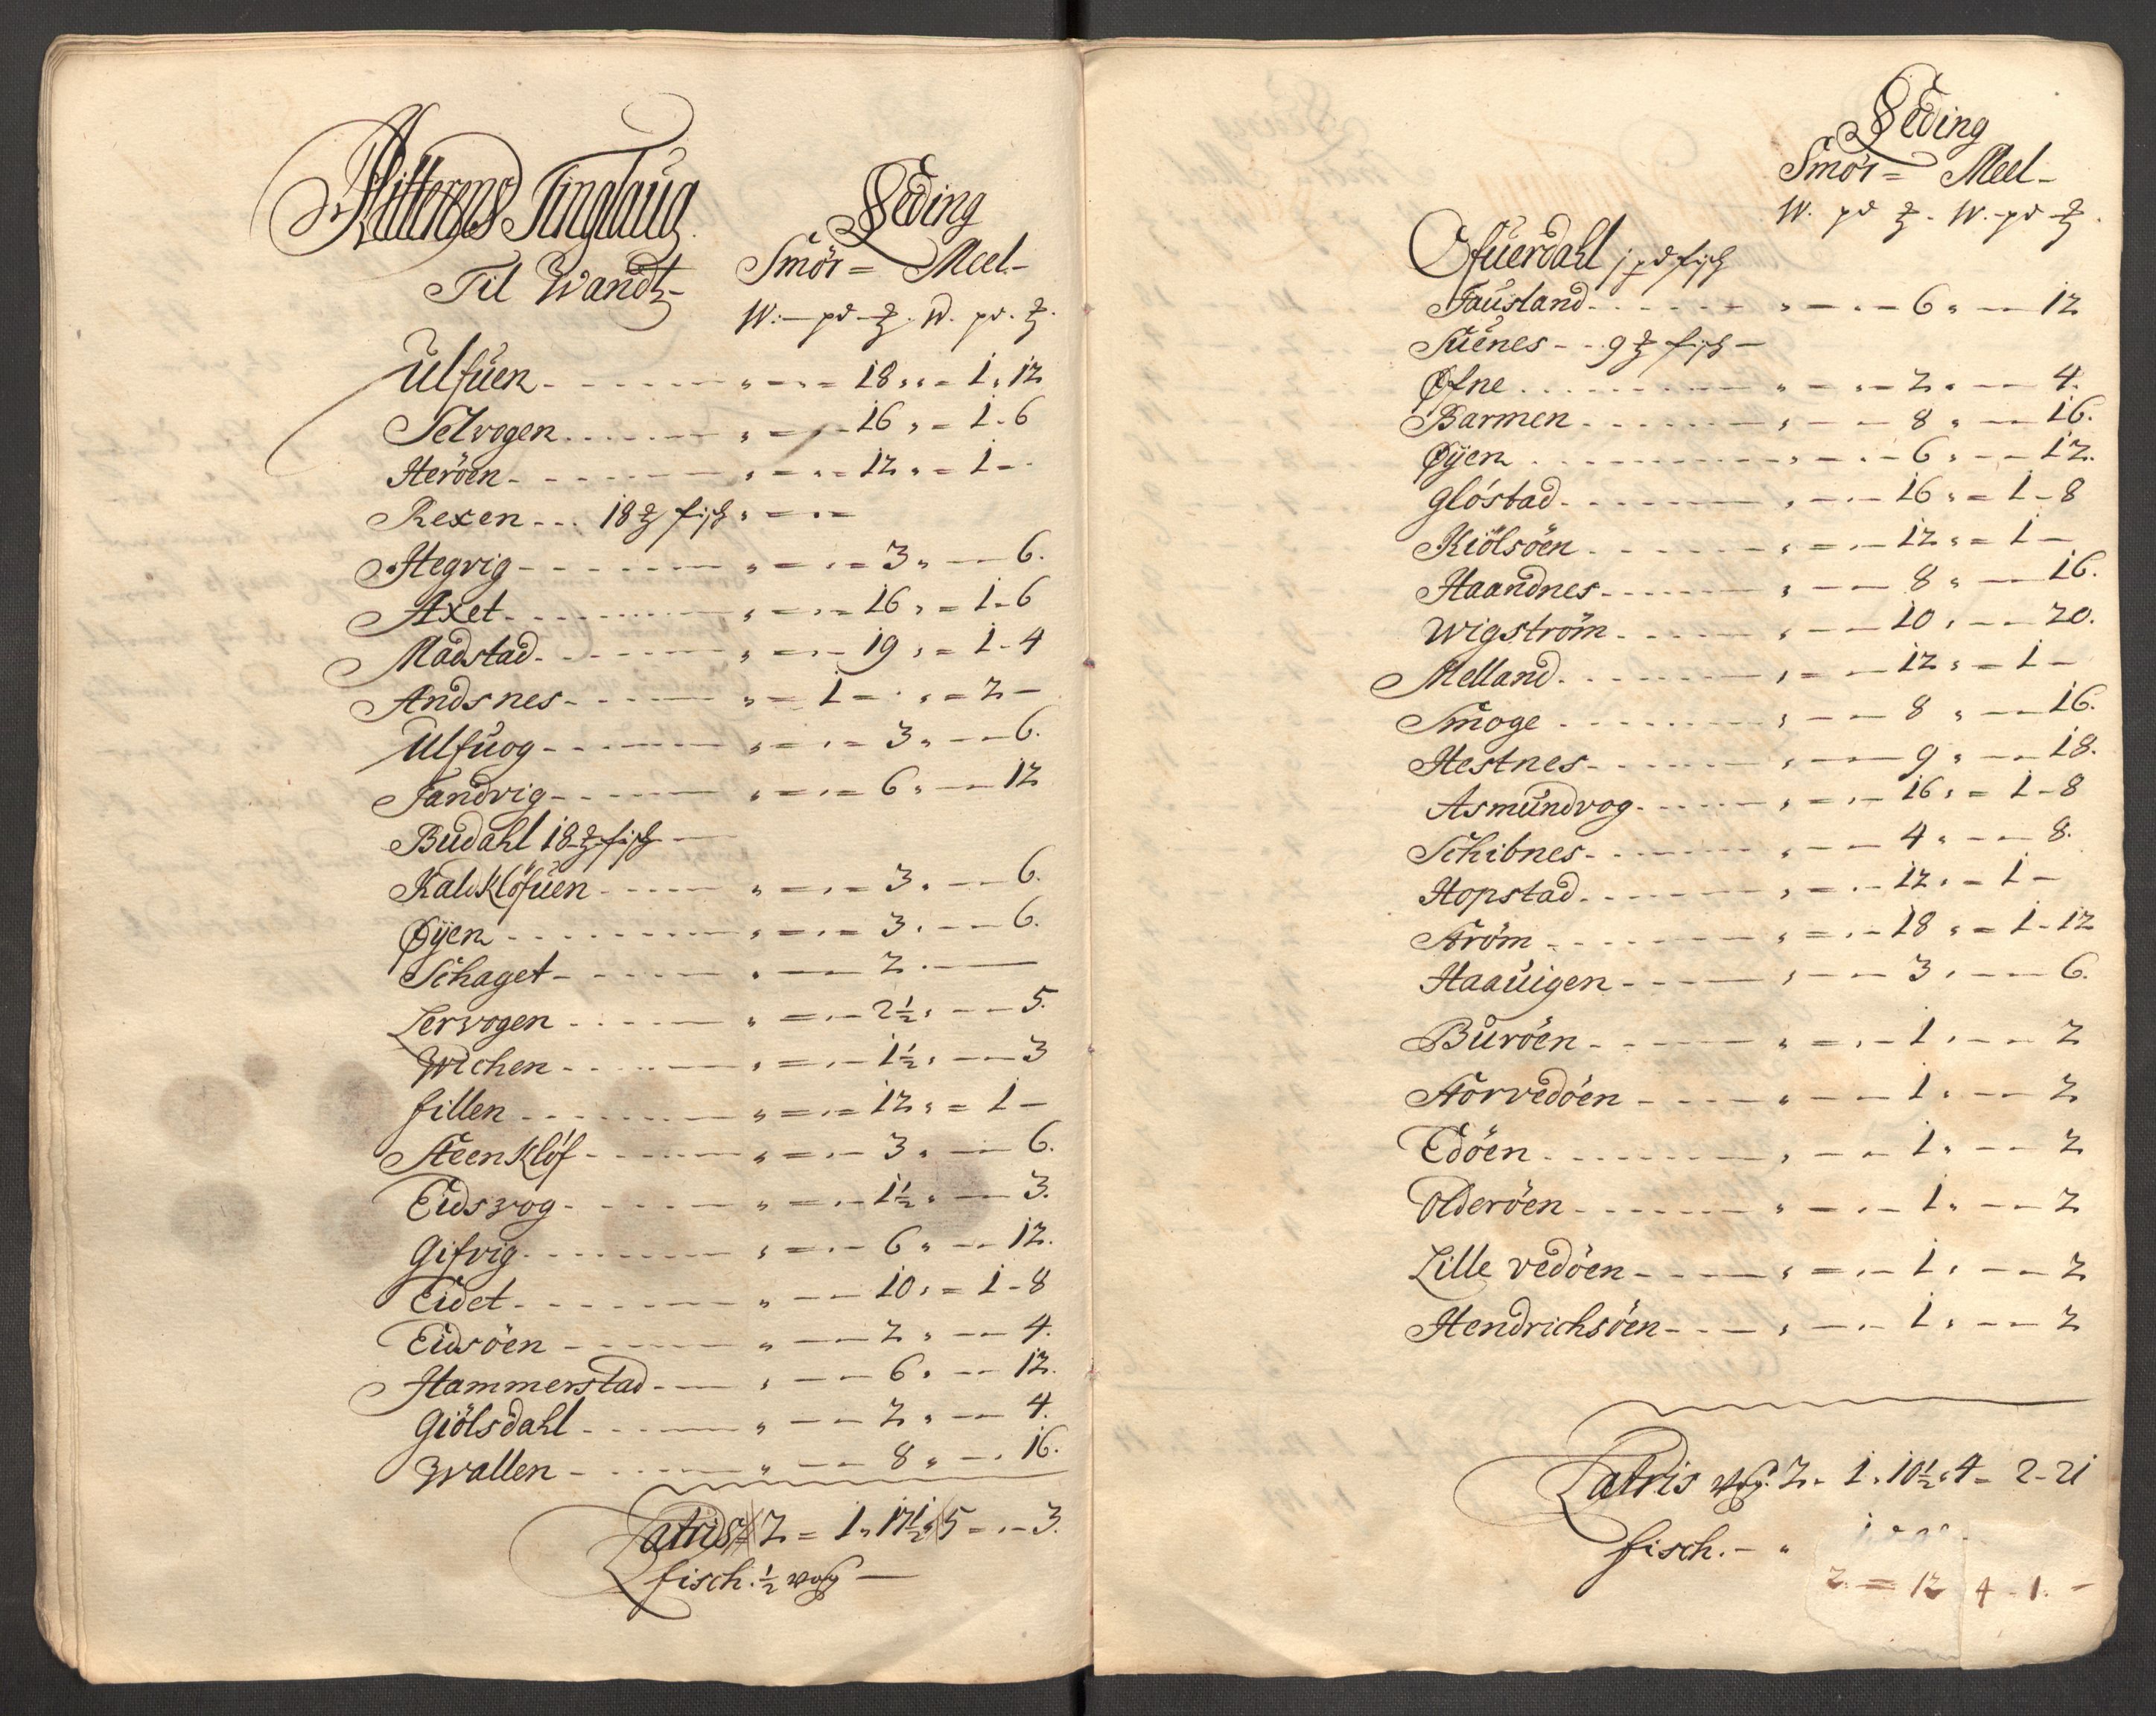 Hitterens Tinglaug
Til Wandtz
Leding
Smör = Meel -
W: - pd - ℔. W. pd. ℔.
Ulfuen - - - " - - - 18 , , = 1 , 12
Selvogen - - - " - - - 16 , = 1 - 6
Heröen - - - " - - - 12 , = 1 - -
Rexen - - . 18 ℔ fisch " - - -
Hegvig - - - " = , = 3 , - - 6.
Axet - - - " = , - 16 , = 1 - 6
Madstad - - - " = , - 19 , = 1 - 4
Andsnes - - - " = 1 - . , = 2 -
Ulfuog - - - " = , = 3 , - - 6.
Sandvig - - - " = , = 6 , - - 12
Budahl 18 ℔ fisch -
Kaldklöfuen - - - " = , = 3 , - - 6.
Øyen - - - " = , = 3 , - - 6.
Schaget - - - " - - 2 . -
Lervogen - - - " = , - 2½ , - - 5.
Wichen - - - " = , - 1½ , - - 3
fillen - - - " = , = 12 , = 1 -
Steenklöf - - - " = , - 3 , - - 6.
Eidsvog - - - " = , - 1½ , - - 3.
Gifvig - - - " = , - 6 , - - 12.
Eidet - - - " - - 10 , = 1 - 8
Eidsöen - - - " - - 2 , - - 4.
Hammerstad - - - " - - 6 , - - 12.
Giölsdahl - - - " - - 2 , - - 4.
Wallen - - - " - - 8 , - - 16.
Latris 2 = 1 , 17½ , 5 = , - 3.
fisch. ½ wog -
Leding
Smör = Meel -
W. pd ℔. W. - pd - ℔.
Ofuerdahl j pd fisch
Fausland - - - , - - - 6 , - - 12
Suenes - - 9 ℔ fisch -
Øfne - - - " - , - 2 , - - 4.
Barmen - - - , - - 8 , - - 16.
Øyen - - - , - - - 6 , - - 12.
Glöstad - - - , - - 16 , = 1 - 8
Kiölsöen - - - , = , - 12 , = 1 -
Haandnes - - - , - - 8 , - - 16.
Wigström - - - , - - 10 , - - 20.
Melland - - - , = - 12 , = 1 -
Smoge - - - , - - 8 , - - 16.
Hestnes - - - , - - 9 , - - 18.
Asmundvog - - - , = , - 16 , = 1 - 8
Schibnes - - - , - - 4 , - - 8.
Hopstad - - - , = , - 12 , = 1 -
Ström - - - , = , - 18 , = 1 - 12
Haauigen - - - , - - 3 , - - 6.
Buröen - - - " = , - 1 , - - 2
Storvedöen - - - " - - 1 , - - 2
Edöen - - - , - - 1 , - - 2
Olderöen - - - " - , - 1 , - - 2
Lille vedöen - - - , = , - 1 , - - 2
Hendrichsöen - - - , - - 1 , - - 2
Latris wog. 2 - 1 , 10½ , 4 = 2 - 21
fisch. - "
2. = 12 4 - 1. -